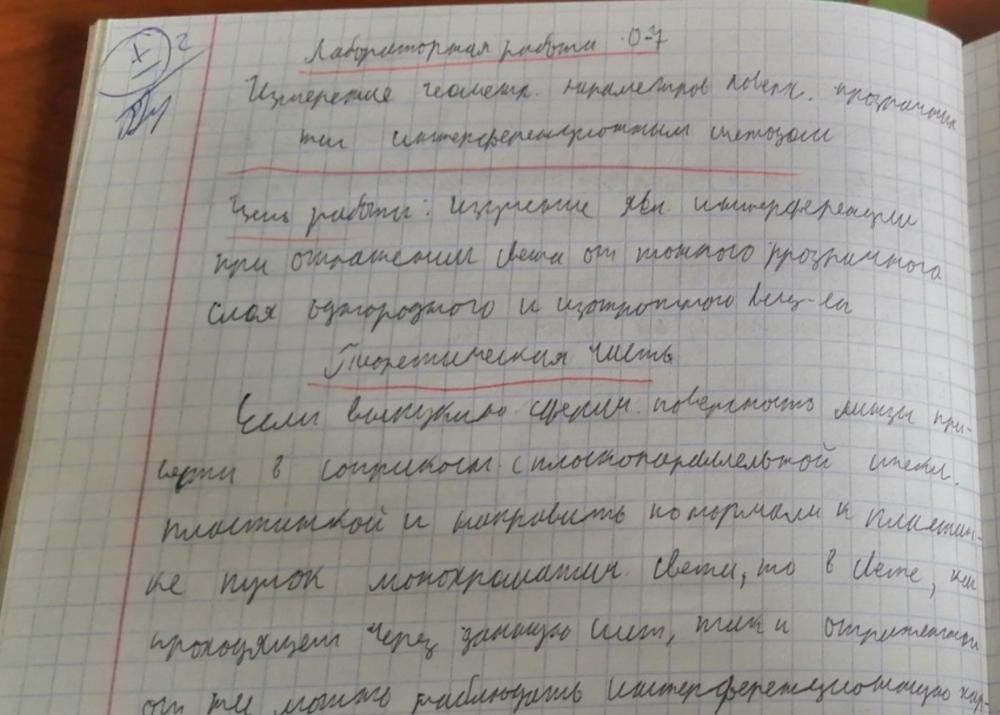 Лабораторная работа О-7
Измерение геометр. параметров поверх. прозрачных
тел интерференционным методом
Цель работы: изучение явл. интерференции
при отражении света от тонкого прозрачного
слоя однородного и изотропного вещ-ва
Теоретическая часть
Если выпуклую сферич. поверхность линзы при-
вести в соприкосн. с плоскопараллельной стекл.
пластинкой и направить по нормали к пластин-
ке пучок монохроматич. света, то в свете, как
проходящем через данную сист, так и отраженном
от нее можно наблюдать интерференционную кар-